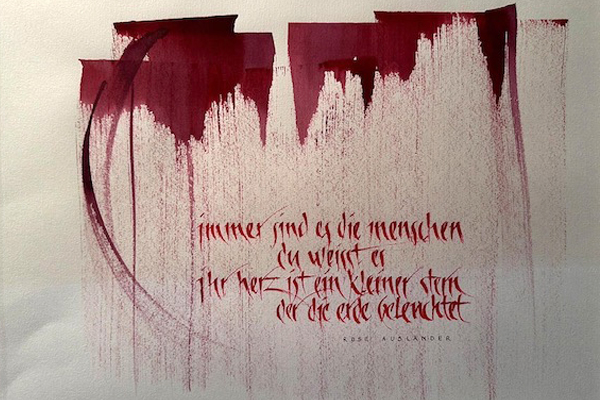 immer sind es die menschen
du weisst es
ihr herz ist ein kleiner stern
der die erde beleuchtet
ROSE AUSLÄNDER